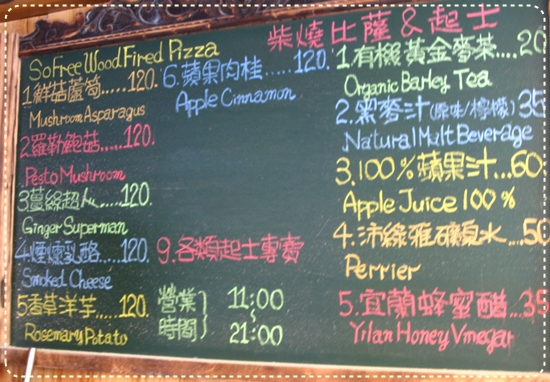 柴燒比薩&起士
SoFree Wood Fired Pizza
1.鮮菇蘆筍.....120.
Mushroom Asparagus
2.羅勒鮑菇....120.
Pesto Mushroom
3.薑絲超人.....120.
Ginger Superman
4.煙燻乳酪....120.
Smoked Cheese
5.香草洋芋....120.
Rosemary Potato
6.蘋果肉桂.....120.
Apple Cinnamon
9.各類起士專賣
營業時間} 11:00
~
21:00
1.有機黃金麥茶....20
Organic Barley Tea
2.黑麥汁(原味/檸檬)35
Natural Malt Beverage
3.100%蘋果汁...60
Apple Juice 100%
4.沛綠雅礦泉水...50
Perrier
5.宜蘭蜂蜜醋...35
Yilan Honey Vinegar